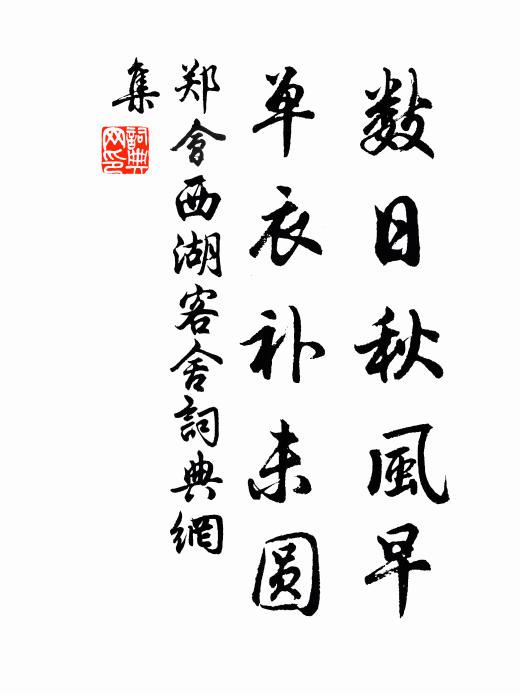 数日秋風早
单衣补未圆
郑會西湖客舍詞典網
集
詞典网印